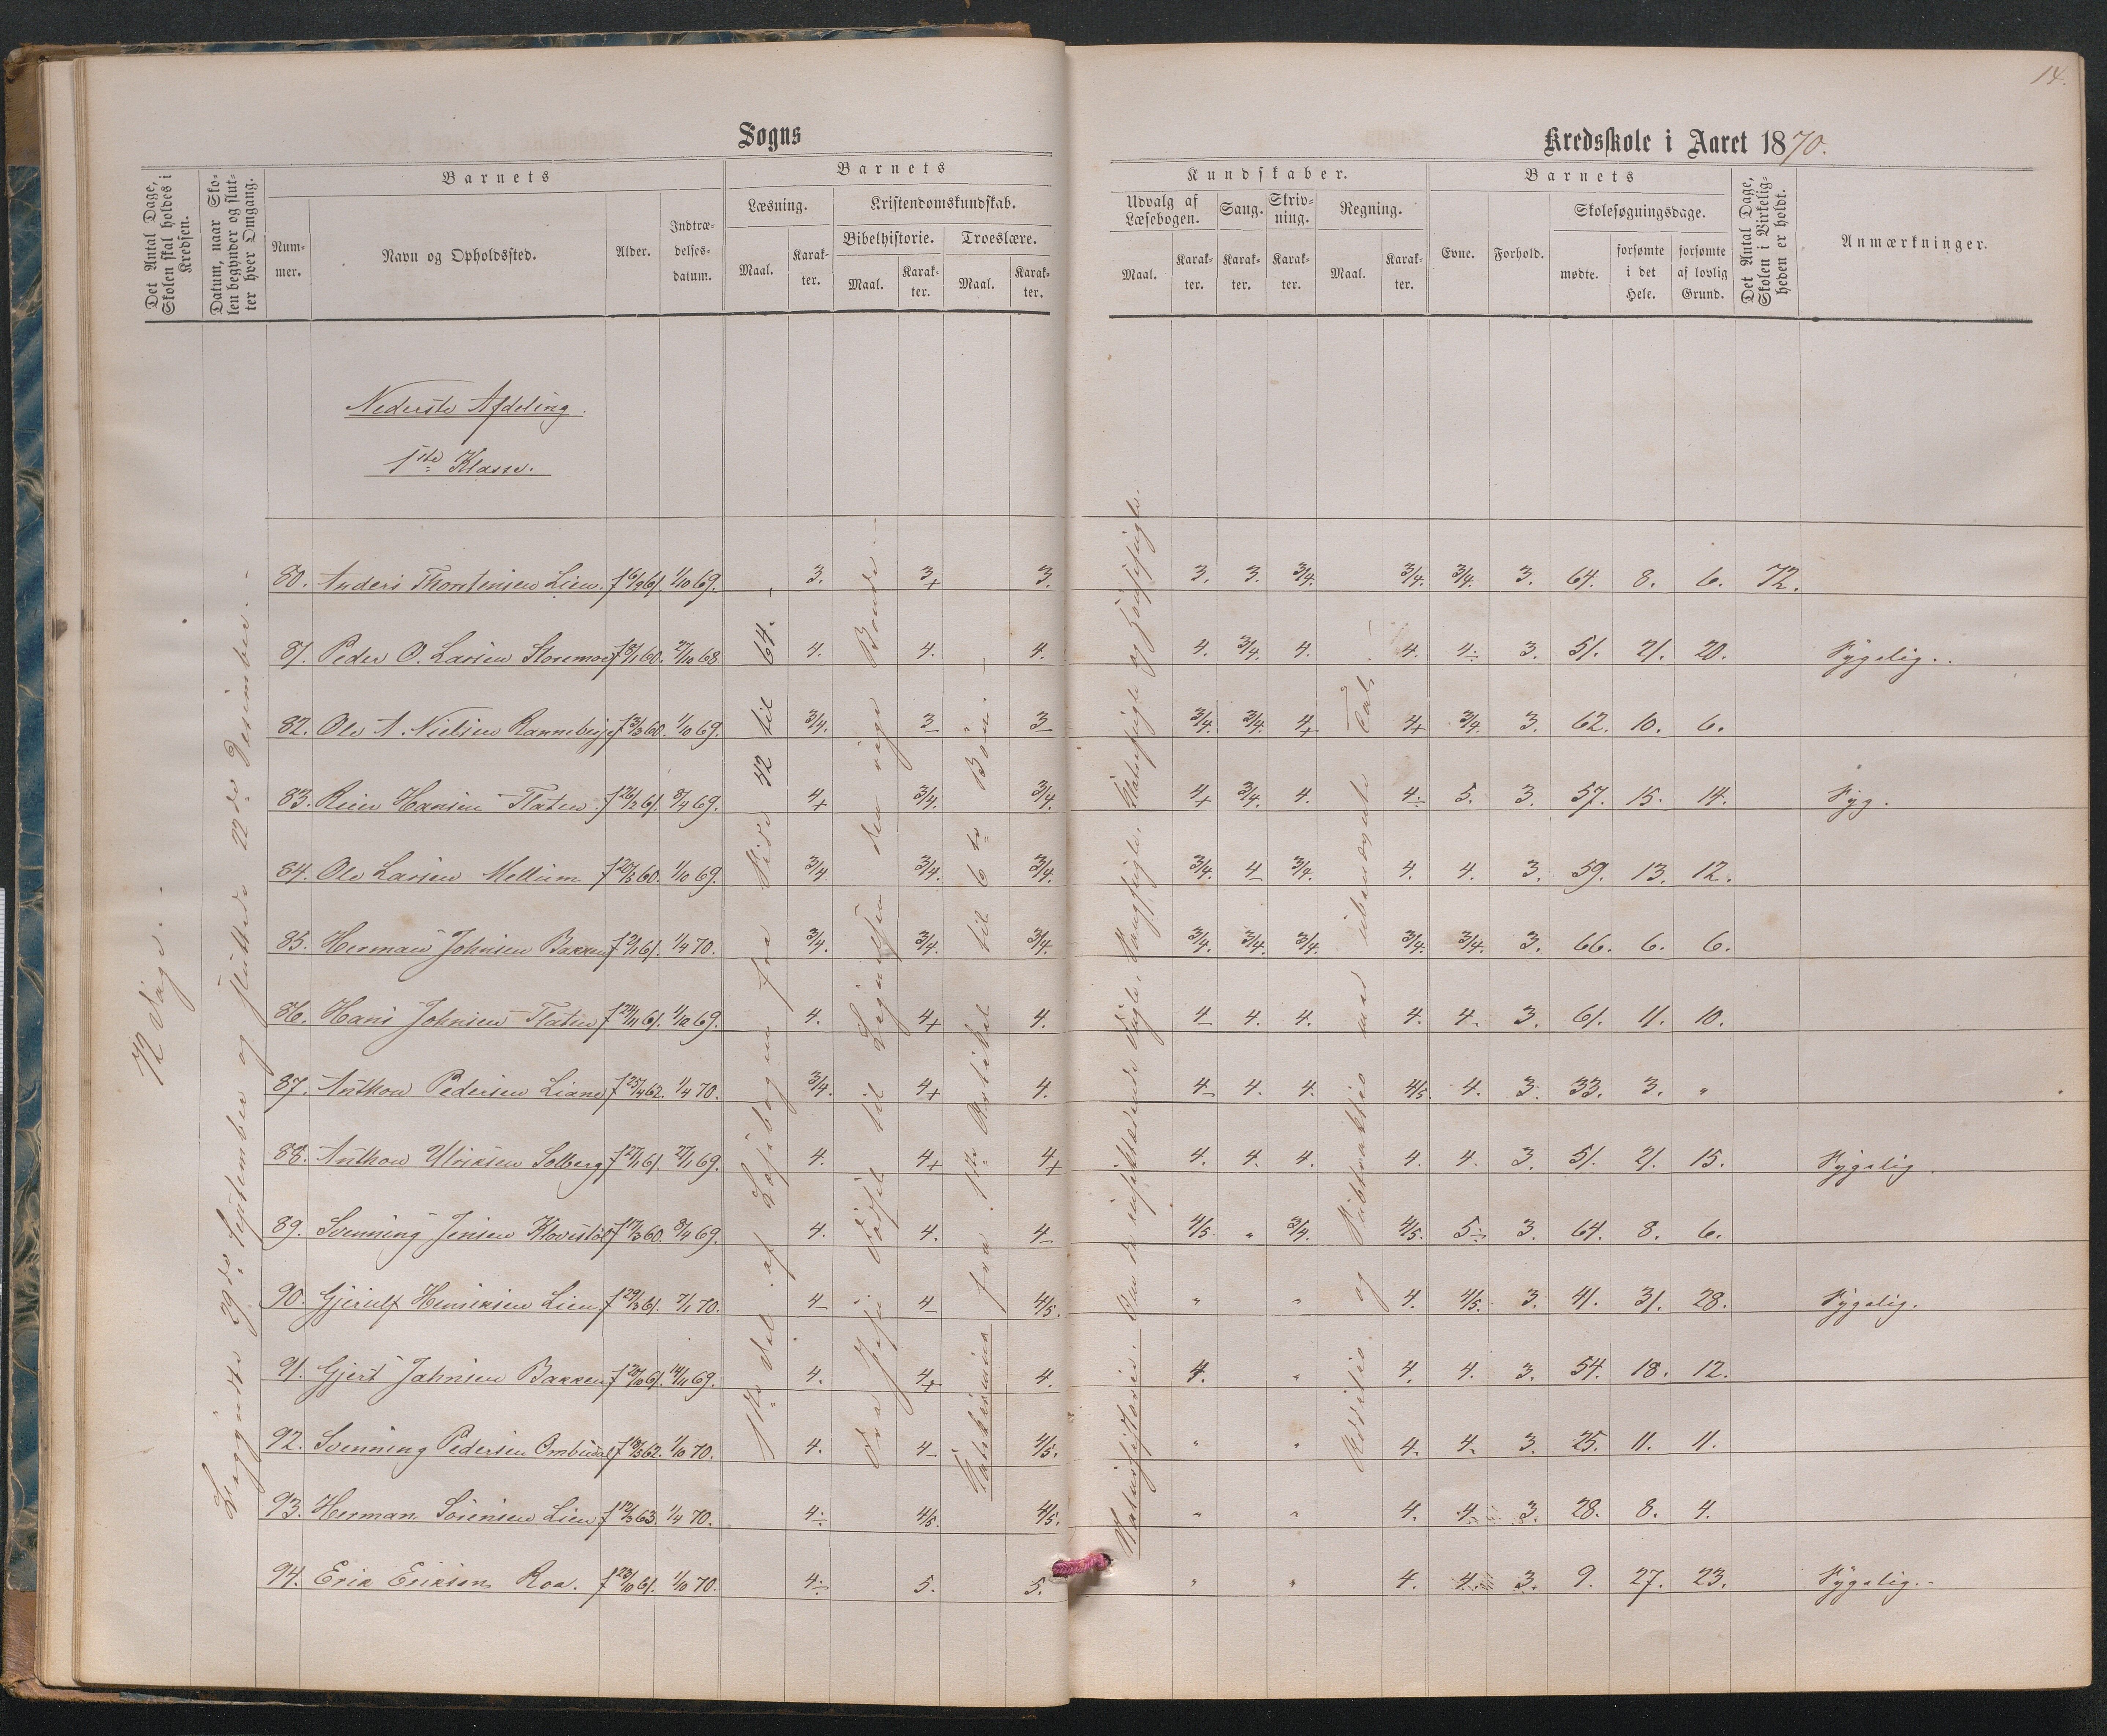 14.
Sogns
Kredsskole i Aaret 1870.
Det Antal Dage, Skolen skal holdes i Kredsen.
Datum, naar Skolen begynder og slutter hver Omgang.
Barnets
Nummer.
Navn og Opholdssted.
Alder.
Indtrædelsesdatum.
Barnets
Læsning.
Maal.
Karakter.
Kristendomskundskab.
Bibelhistorie.
Maal.
Karakter.
Troeslære.
Maal.
Karakter.
Kundskaber.
Udvalg af Læsebogen.
Maal.
Karakter.
Sang.
Karakter.
Skrivning.
Karakter.
Regning.
Maal.
Karakter.
Barnets
Evne.
Forhold.
Skolesøgningsdage.
mødte.
forsømte i det Hele.
forsømte af lovlig Grund.
Det Antal Dage, Skolen i Virkeligheden er holdt.
Anmærkninger.
72 Dage.
Begyndte 29de September og sluttede 22de Desember.
Nederste Afdeling.
1ste Klasse.
1ste Del af Læsebogen fra Side 42 til 64.
Fra Jesu Daab til Lignelsen om den rige Bonde.
Katekismus fra 1ste Artikel til 6te Bön.
Naturhistorie.
Addition og Subtraktion med ubenævnte Tal.
80. Anders Thorstensen Lien. f 6/9 61. 1/10 69. 3. 3+ 3. 3. 3. 3/4. 3/4. 3/4. 3. 64. 8. 6. 72.
81. Peder O. Larsen Storemoe f 8/1 60. 27/10 68 4. 4. 4. 4. 3/4. 4. 4. 4÷ 3. 51. 21. 20. Sygelig.
82. Ole A. Nielsen Ranneberg f 3/3 60. 1/10 69. 3/4. 3 3 3/4. 3/4. 4+ 4+ 3/4. 3. 62. 10. 6.
83. Reier Hansen Flaten f 26/2 61. 8/4 69. 4+ 3/4. 3/4. 4+ 3/4. 4. 4÷ 5. 3. 57. 15. 14. Syg.
84. Ole Larsen Mellum f 20/5 60. 1/10 69. 3/4 3/4. 3/4. 3/4. 4 3/4. 4. 4. 3. 59. 13. 12.
85. Herman Johnsen Bakken f 2/1 61. 1/4 70. 3/4. 3/4. 3/4. 3/4. 3/4. 3/4. 3/4. 3/4. 3. 66. 6. 6.
86. Hans Johnsen Flaten f 24/11 61. 1/10 69. 4. 4+ 4. 4 4. 4. 4. 4. 3. 61. 11. 10.
87. Anthon Pedersen Liane f 25/4 62. 1/4 70. 3/4. 4+ 4. 4 4. 4. 4/5. 4. 3. 33. 3. "
88. Anthon Ulriksen Solberg f 27/1 61. 27/1 69. 4. 4+ 4+ 4. 4. 4. 4. 4. 3. 51. 21. 15. Sygelig.
89. Svenning Jensen f 17/3 60. 8/4 69. 4. 4. 4 4/5 " 3/4. 4/5. 5÷ 3. 64. 8. 6.
90. Gjerulf Henriksen Lien f 29/3 61. 7/1 70. 4 4 4/5. " " 4. 4/5. 3. 41. 31. 28. Sygelig.
91. Gjert Jahnsen Bakken f 20/10 61. 14/11 69. 4. 4+ 4. 4. " 4. 4. 3. 54. 18. 12.
92. Svenning Pedersen 1/10 70. 4. 4 4/5. " " 4. 4. 3. 25. 11. 11.
93. Herman Sörensen Lien f 12/3 63. 1/4 70. 4÷ 4/5. 4/5. " " 4. 4 3. 28. 8. 4.
94. Erik Eriksen Roa. f 23/10 61. 1/10 70. 4÷ 5. 5. " " 4. 4. 3. 9. 27. 23. Sygelig.